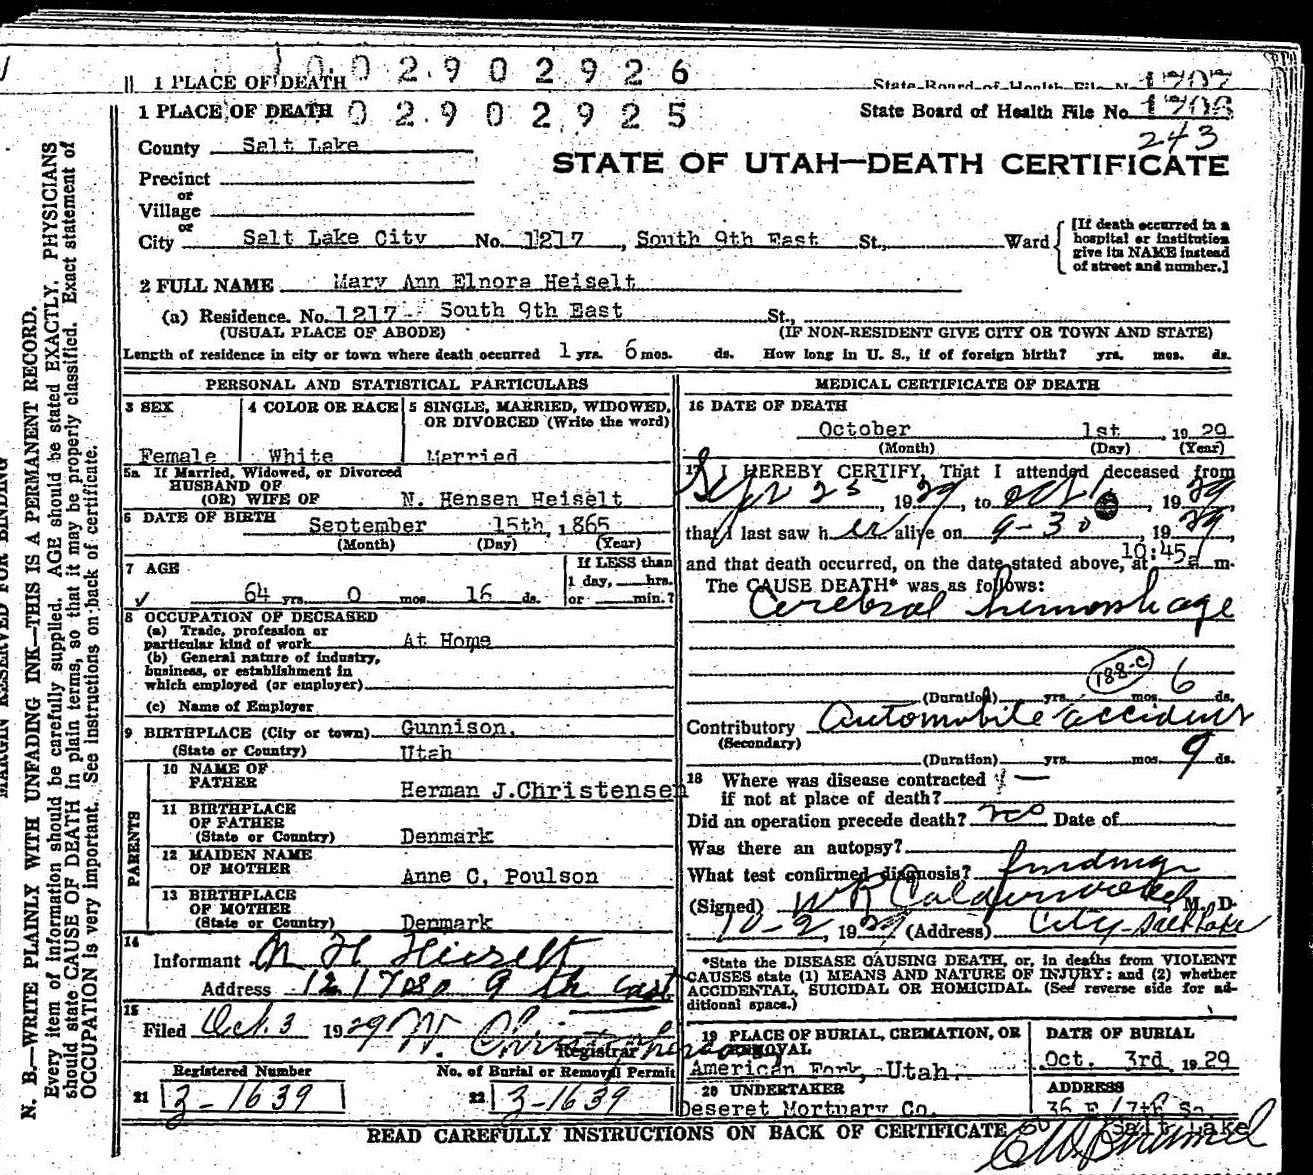 1 PLACE OF DEATH 0 0 2 9 0 2 9 2 6 State Board of Health File No. 1707
1 PLACE OF DEATH 0 2 9 0 2 9 2 5 State Board of Health File No. 1708
243
County Salt Lake
STATE OF UTAH—DEATH CERTIFICATE
Precinct
or
Village
or
City Salt Lake City No. 1217, South 9th East St., Ward
[If death occurred in a hospital or institution give its NAME instead of street and number.]
2 FULL NAME Mary Ann Elnora Heiselt
(a) Residence. No. 1217 South 9th East St.,
(USUAL PLACE OF ABODE) (IF NON-RESIDENT GIVE CITY OR TOWN AND STATE)
Length of residence in city or town where death occurred 1 yrs. 6 mos. ds. How long in U. S., if of foreign birth? yrs. mos. ds.
PERSONAL AND STATISTICAL PARTICULARS
3 SEX 4 COLOR OR RACE 5 SINGLE, MARRIED, WIDOWED,
OR DIVORCED (Write the word)
Female White Married
5a If Married, Widowed, or Divorced
HUSBAND OF
(OR) WIFE OF N. Hensen Heiselt
6 DATE OF BIRTH September 15th, 1865
(Month) (Day) (Year)
7 AGE If LESS than
1 day, hrs.
64 yrs. 0 mos. 16 ds. or min.?
8 OCCUPATION OF DECEASED
(a) Trade, profession or
particular kind of work At Home
(b) General nature of industry,
business, or establishment in
which employed (or employer)
(c) Name of Employer
9 BIRTHPLACE (City or town) Gunnison,
(State or Country) Utah
PARENTS
10 NAME OF
FATHER Herman J.Christensen
11 BIRTHPLACE
OF FATHER
(State or Country) Denmark
12 MAIDEN NAME
OF MOTHER Anne C. Poulson
13 BIRTHPLACE
OF MOTHER
(State or Country) Denmark
14
Informant N H Heiselt
Address 1217 So 9 th East
15
Filed Oct. 3 1929
Registrar
Registered Number No. of Burial or Removal Permit
21 3-1639 22 3-1639
MEDICAL CERTIFICATE OF DEATH
16 DATE OF DEATH
October 1st, 1929
(Month) (Day) (Year)
17 I HEREBY CERTIFY, That I attended deceased from
Sept 25, 1929, to Oct 1, 1929,
that I last saw her alive on 9-30, 1929,
and that death occurred, on the date stated above, at 10:45 a m.
The CAUSE DEATH* was as follows:
Cerebral hemorrhage
188-C
(Duration) yrs. mos. 6 ds.
Contributory Automobile accident
(Secondary)
(Duration) yrs. mos. 9 ds.
18 Where was disease contracted
if not at place of death?
Did an operation precede death? no Date of
Was there an autopsy?
What test confirmed diagnosis? findings
(Signed) W R Calderwood M. D.
10-2, 1929 (Address) City-Salt Lake
*State the DISEASE CAUSING DEATH, or, in deaths from VIOLENT
CAUSES state (1) MEANS AND NATURE OF INJURY; and (2) whether
ACCIDENTAL, SUICIDAL OR HOMICIDAL. (See reverse side for ad-
ditional space.)
19 PLACE OF BURIAL, CREMATION, OR
REMOVAL
American Fork, Utah.
DATE OF BURIAL
Oct. 3rd, 1929
20 UNDERTAKER
Deseret Mortuary Co.
ADDRESS
36 E 17th So.
Salt Lake
READ CAREFULLY INSTRUCTIONS ON BACK OF CERTIFICATE
MARGIN RESERVED FOR BINDING
N. B.—WRITE PLAINLY WITH UNFADING INK—THIS IS A PERMANENT RECORD.
Every item of information should be carefully supplied. AGE should be stated EXACTLY. PHYSICIANS
should state CAUSE OF DEATH in plain terms, so that it may be properly classified. Exact statement of
OCCUPATION is very important. See instructions on back of certificate.